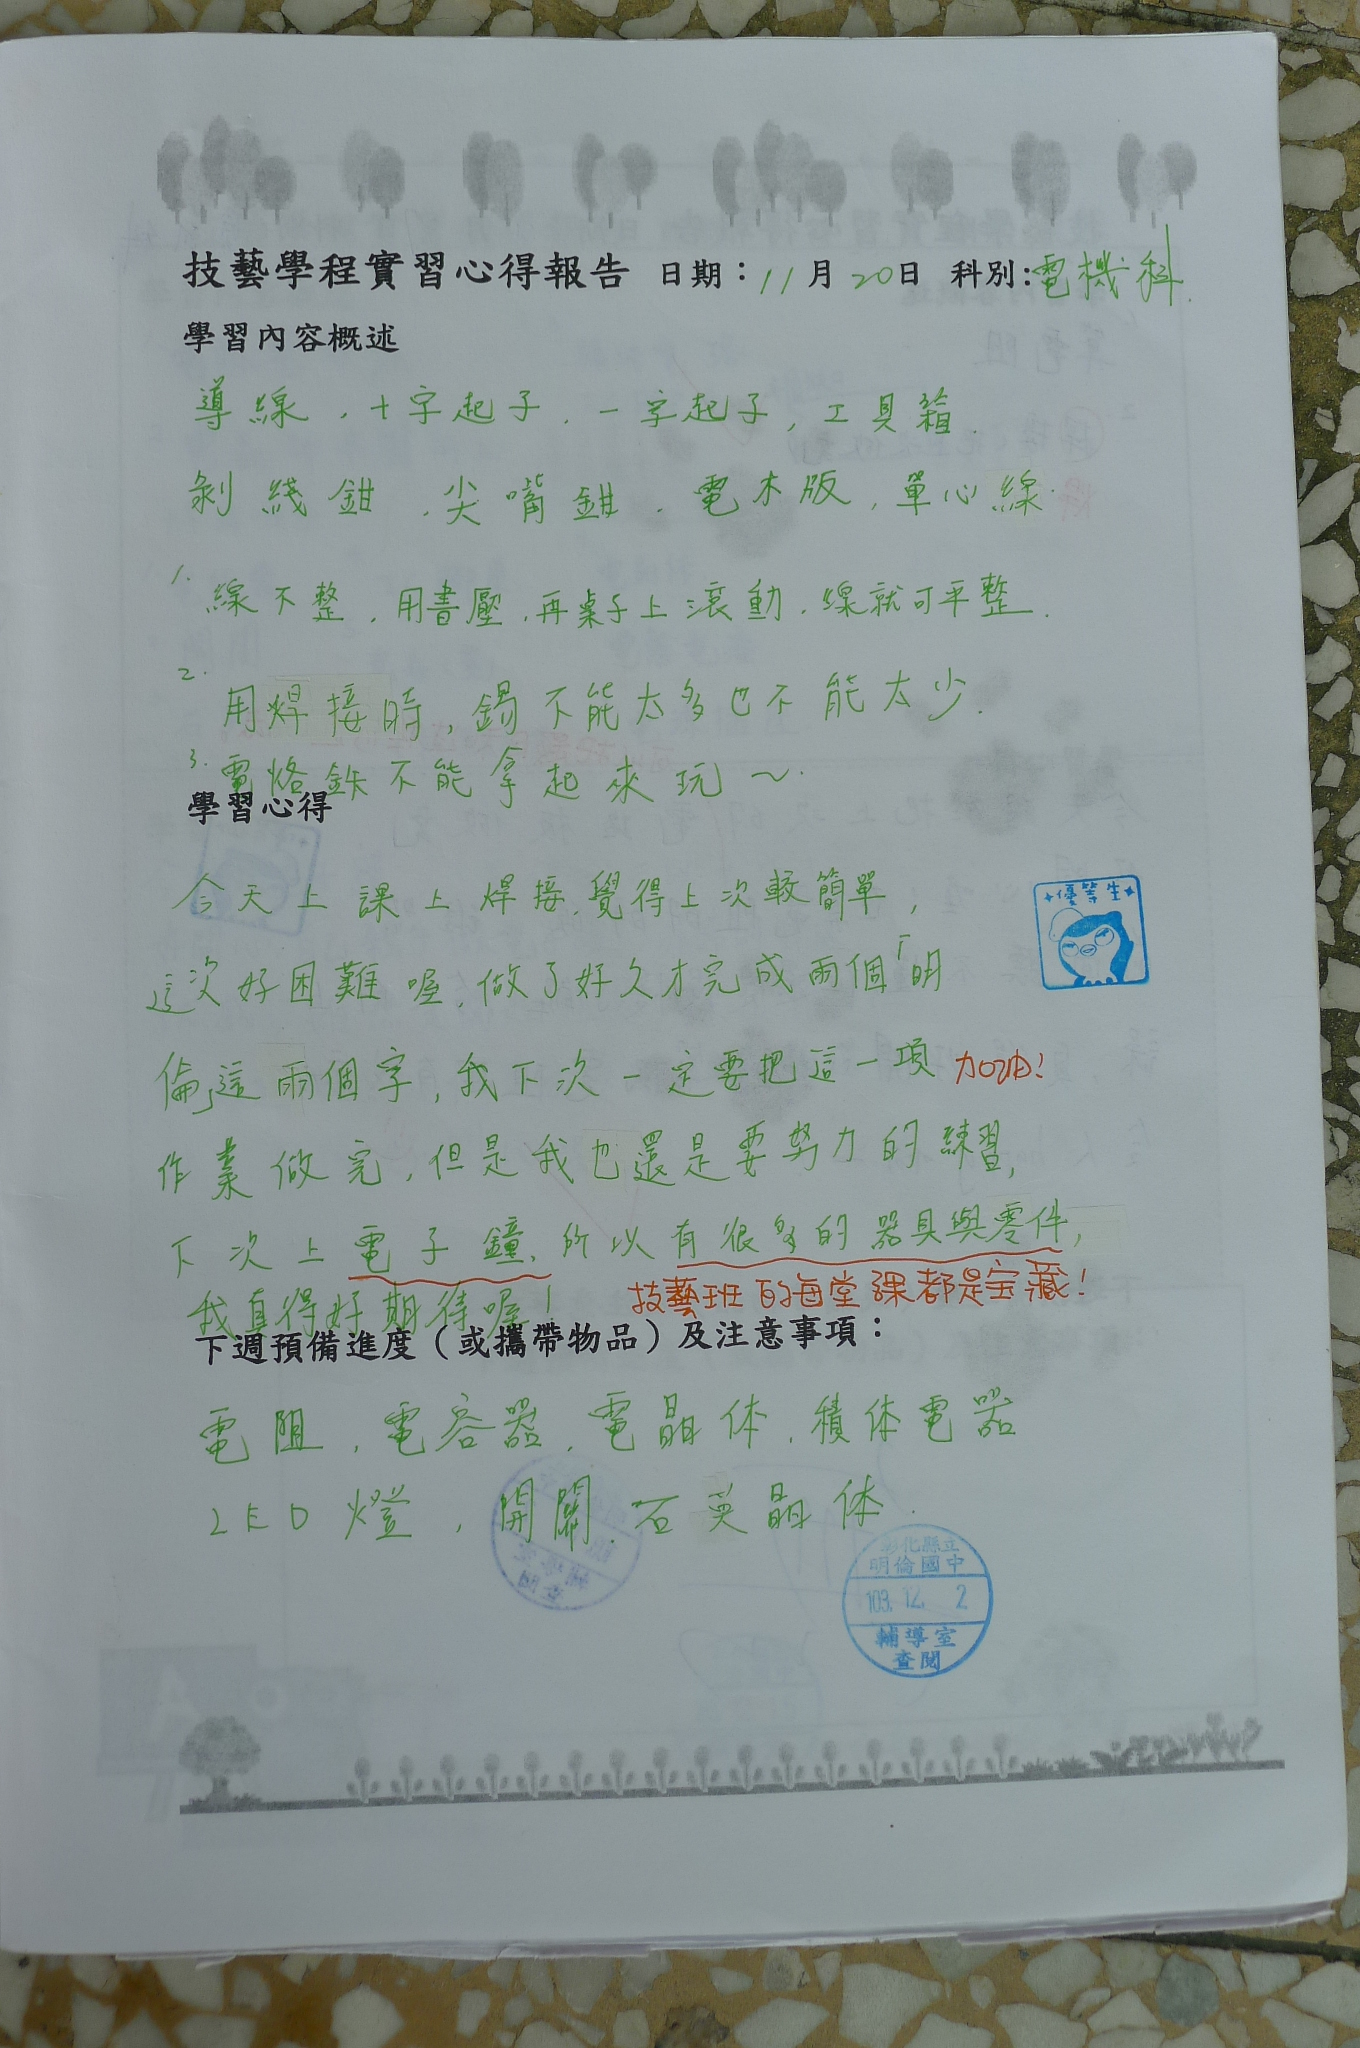 技藝學程實習心得報告 日期：11月20日 科別:電機科
學習內容概述
導線，十字起子，一字起子，工具箱
剝线鉗，尖嘴鉗，電木版，單心線
1. 線不整，用書壓，再桌子上滾動，線就可平整．
2. 用焊接時，錫不能太多也不能太少．
3. 電烙鉄不能拿起來玩～
學習心得
今天上課上焊接，覺得上次較簡單，
優等生
這次好困難喔，做了好久才完成兩個「明
倫」這兩個字，我下次一定要把這一項 加油！
作業做完，但是我也還是要努力的練習，
下次上電子鐘，所以有很多的器具與零件，
我真得好期待喔！ 技藝班的每堂課都是宝藏！
下週預備進度（或攜帶物品）及注意事項：
電阻，電容器，電晶体，積体電器
LED燈，開關，石英晶体．
彰化縣立
明倫國中
103.12.2
輔導室
查閱